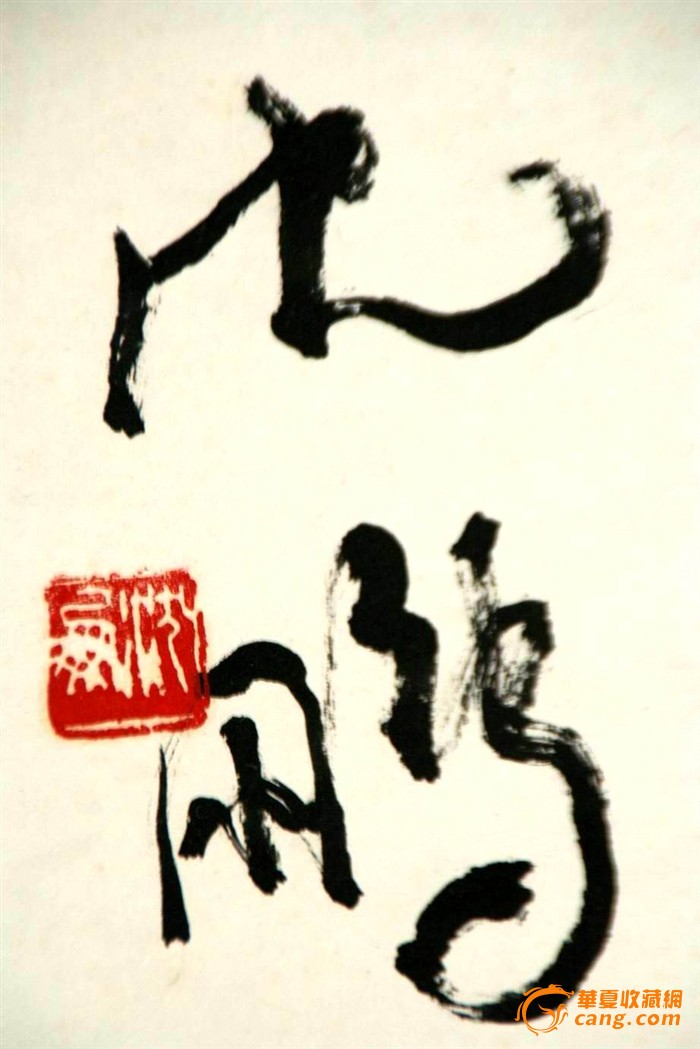 沈鹏
華夏收藏網
cang.com